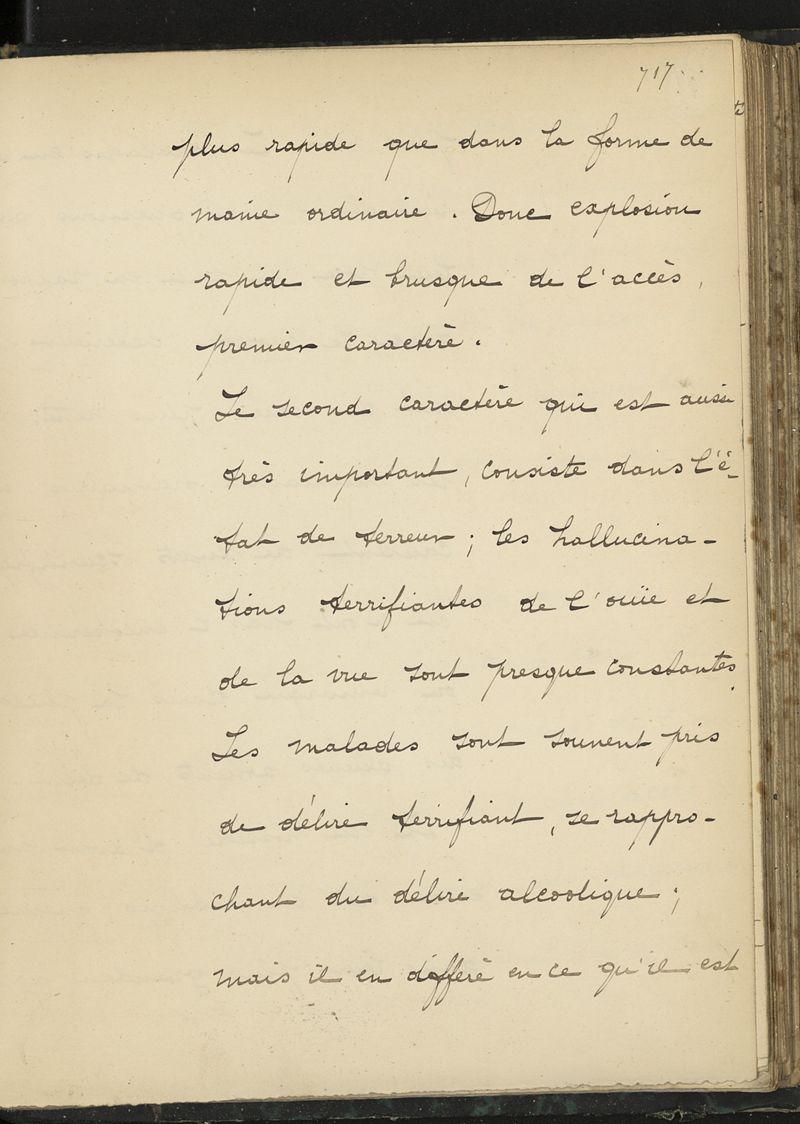 717
plus rapide que dans la forme de
manie ordinaire. Donc explosion
rapide et brusque de l'accès,
premier caractère.
Le second caractère qui est aussi
très important, consiste dans l'é-
tat de terreur; les hallucina-
tions terrifiantes de l'ouïe et
de la vue sont presque constantes.
Les malades sont souvent pris
de délire terrifiant, se rappro-
chant du délire alcoolique;
mais il en diffère en ce qu'il est